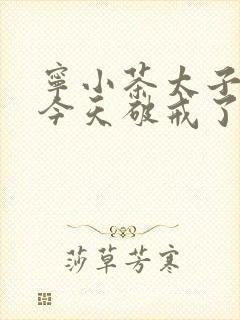 寧小茶太子
今天破戒了
莎草芳寒